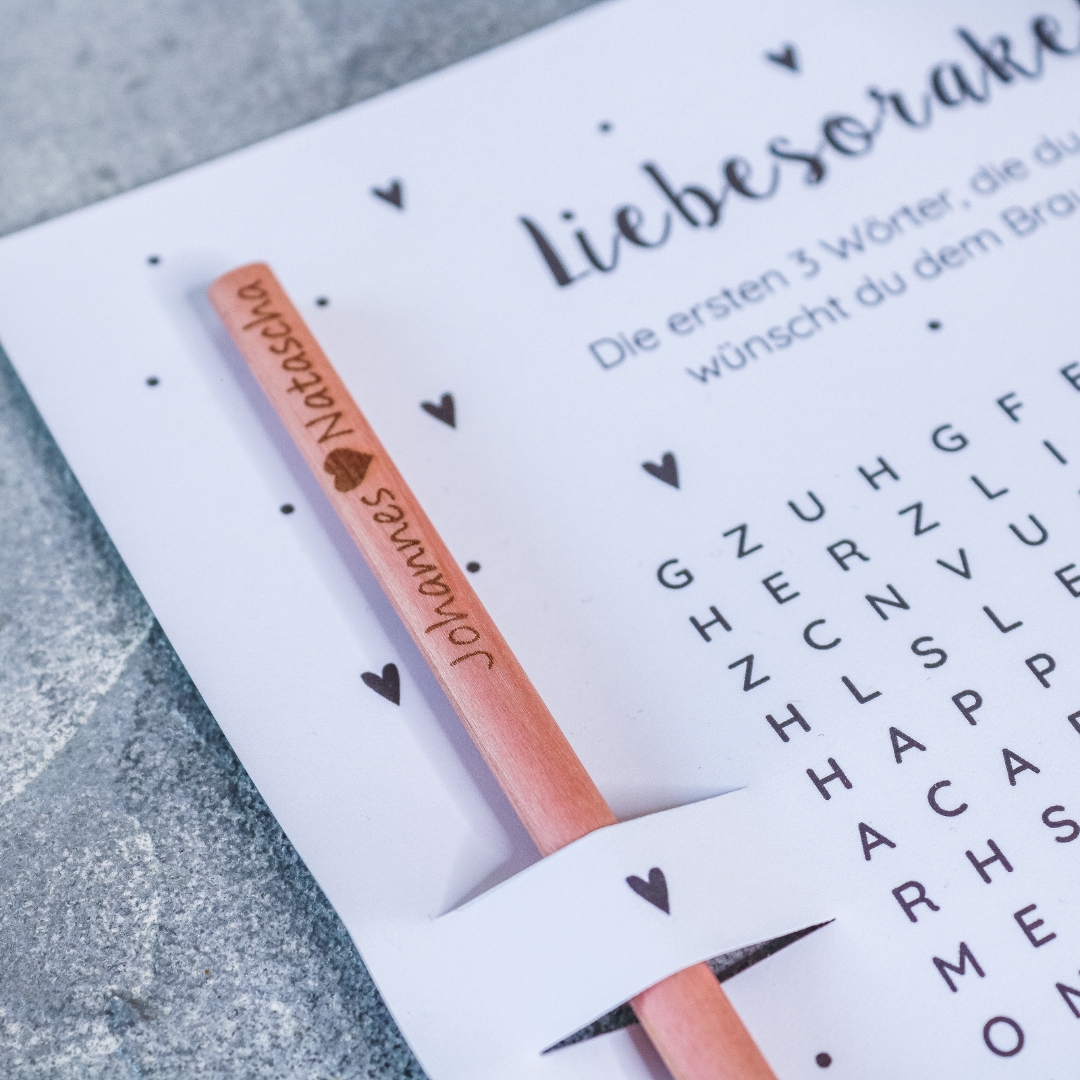 Johannes ♥ Natascha
Liebesorake
Die ersten 3 Wörter, die du
wünscht du dem Brau
G Z U H G F E
H E R Z L I
Z C N V U
H L S L E
H A P P
A C A
R H S
M E
O N